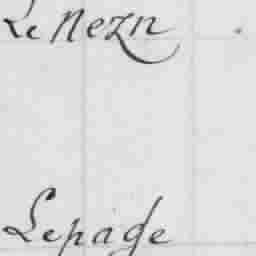 Le Nezn
Lepage